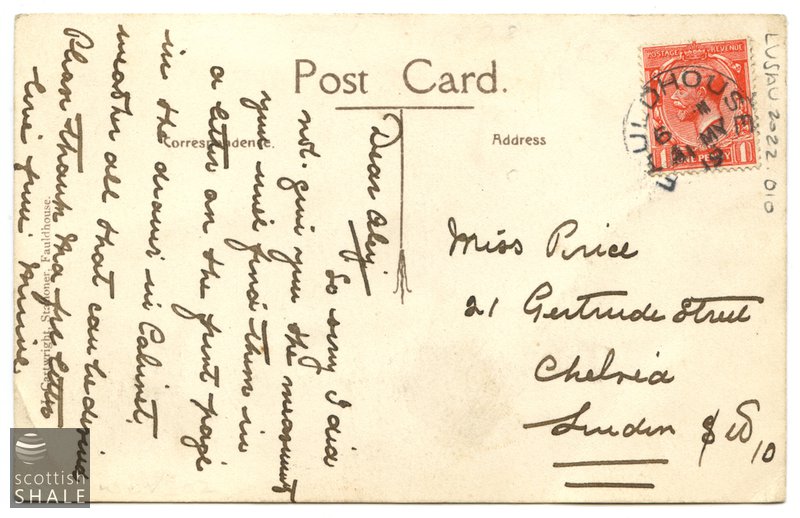 Post Card.
Correspondence.
Address
Dear Aley
So sorry I did
not give you the measurements
you will find them in
a letter on the first page
in the drawer in Cabinet,
that can be
Please thank Ma for letter
love from Minnie
Cartwright, Stationer, Fauldhouse.
Miss Price
21 Gertrude Street
Chelsea
London SW
10
POSTAGE REVENUE
ONE PENNY
1 1
FAULDHOUSE
MY
19
LVSAV2022.010
scottish
SHALE